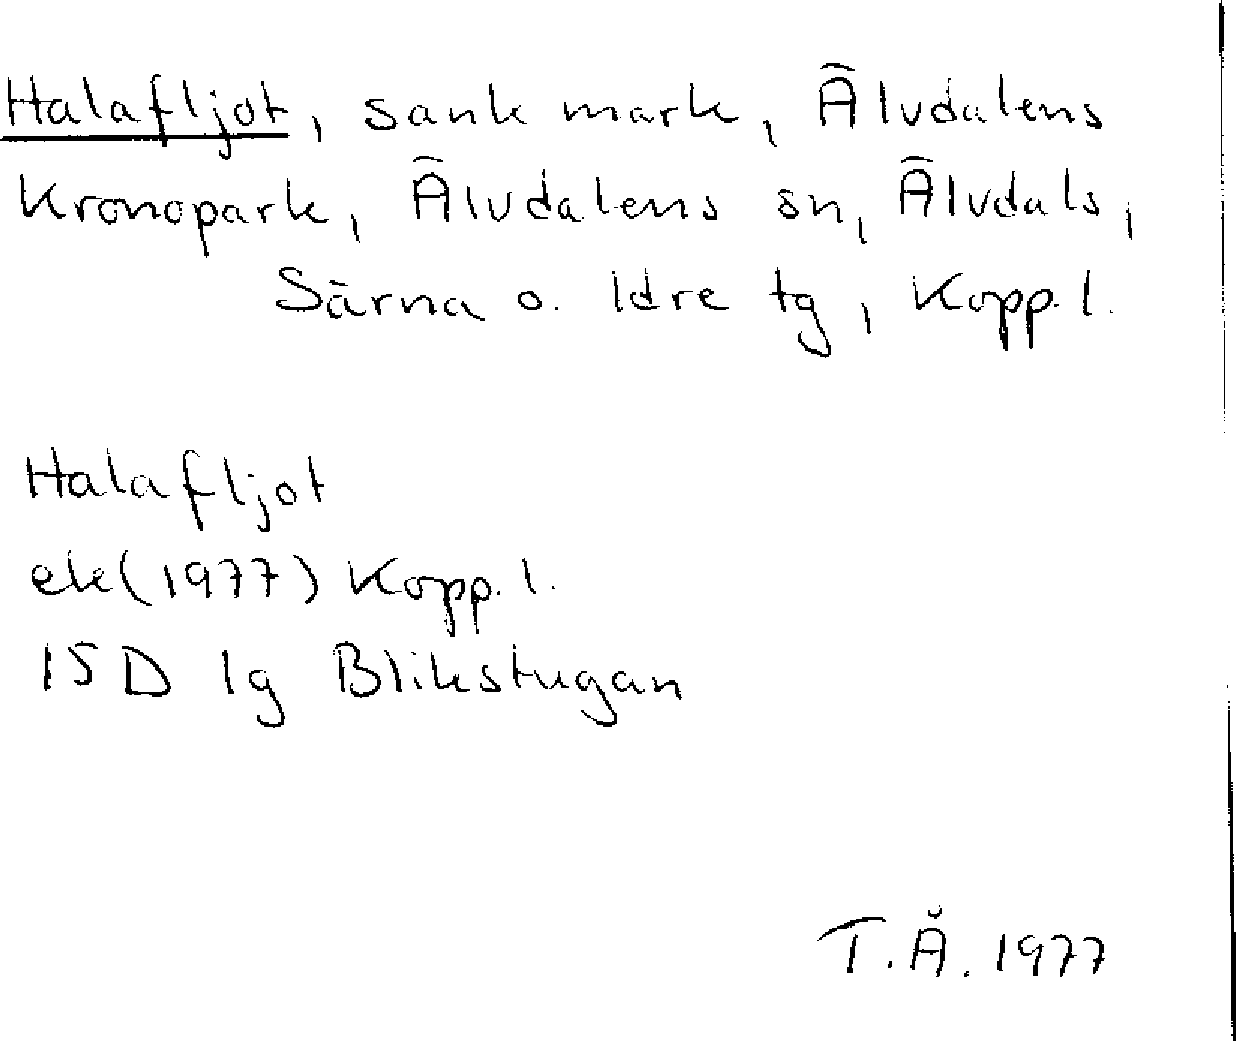 Halafljot, sank mark, Älvdalens
Kronopark, Älvdalens sn, Älvdals,
Särna o. Idre tg, Kopp. l.
Halafljot
ek (1977) Kopp. l.
15 D 1g Blikstugan
T.Å. 1977